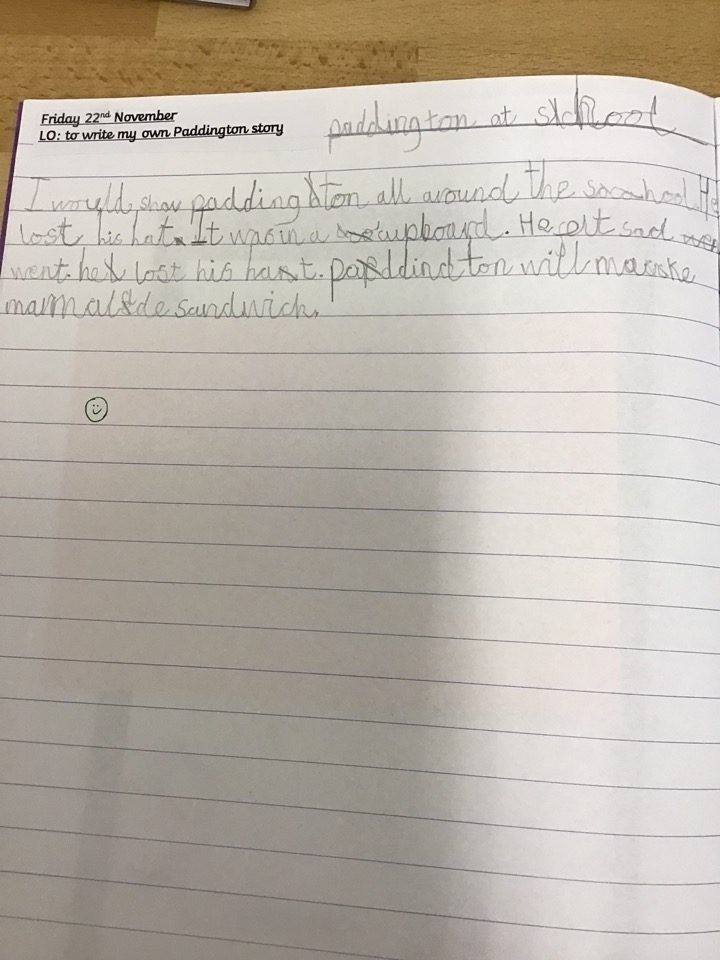 Friday 22nd November
LO: to write my own Paddington story
paddington at school
I would show paddington all around the school. He
lost his hat. It was in a cupboard. He elt sad
went. he lost his hat. paddindton will make
marmalade sandwich.